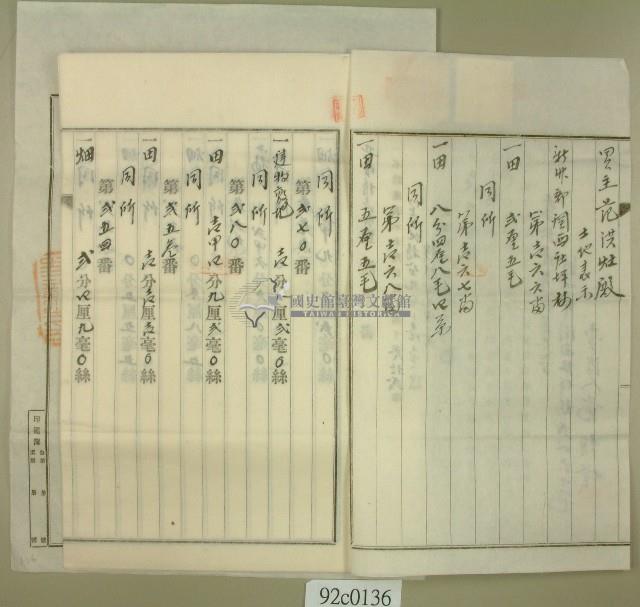 買主范洪灶殿
土地表示
新竹郡關西庄坪林
第壱六六番
一田 弐厘五毛
同所
第壱六七番
一田 八分四厘八毛四糸
同所
第壱六八
一田 五厘五毛
同所
第弐七〇番
一建物敷地 壱分 厘弐毫〇絲
同所
第弐八〇番
一田 壱甲四分九厘弐毫〇絲
同所
第弐五参番
一田 壱分壱厘壱毫〇絲
同所
第弐五四番
一畑 弐分四厘九毫〇絲
國史館臺灣文獻館
TAIWAN HISTORICA
92c0136